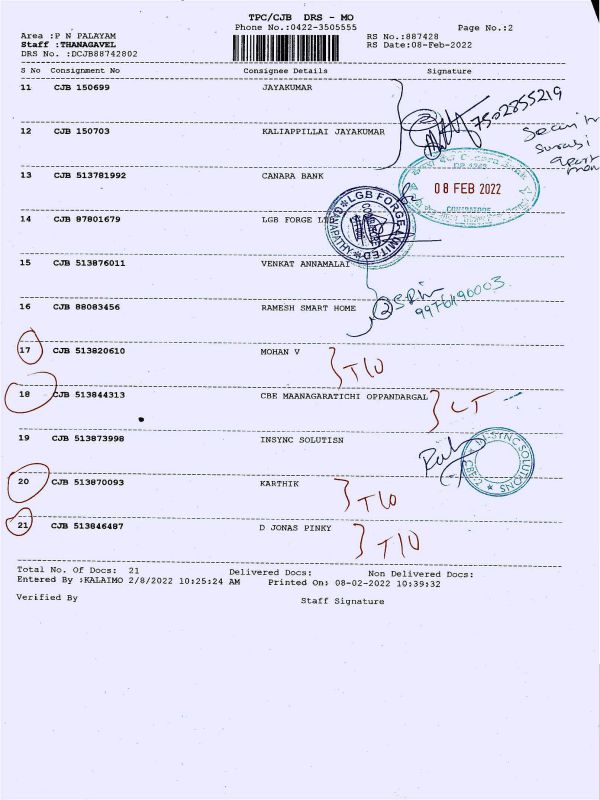 TPC/CJB DRS - MO
Phone No.:0422-3505555
Page No.:2
Area :P N PALAYAM
RS No.:887428
Staff :THANAGAVEL
RS Date:08-Feb-2022
DRS No. :DCJB88742802
S No Consignment No Consignee Details Signature
11 CJB 150699 JAYAKUMAR
7502855219
12 CJB 150703 KALIAPPILLAI JAYAKUMAR
13 CJB 513781992 CANARA BANK
08 FEB 2022
14 CJB 87801679 LGB FORGE LTD
LGB FORGE LIMITED
15 CJB 513876011 VENKAT ANNAMALAI
16 CJB 88083456 RAMESH SMART HOME
17 CJB 513820610 MOHAN V
18 CJB 513844313 CBE MAANAGARATICHI OPPANDARGAL
19 CJB 513873998 INSYNC SOLUTISN
INSYNC SOLUTIONS
CBE-2
20 CJB 513870093 KARTHIK
21 CJB 513846487 D JONAS PINKY
Total No. Of Docs: 21 Delivered Docs: Non Delivered Docs:
Entered By :KALAIMO 2/8/2022 10:25:24 AM Printed On: 08-02-2022 10:39:32
Verified By Staff Signature